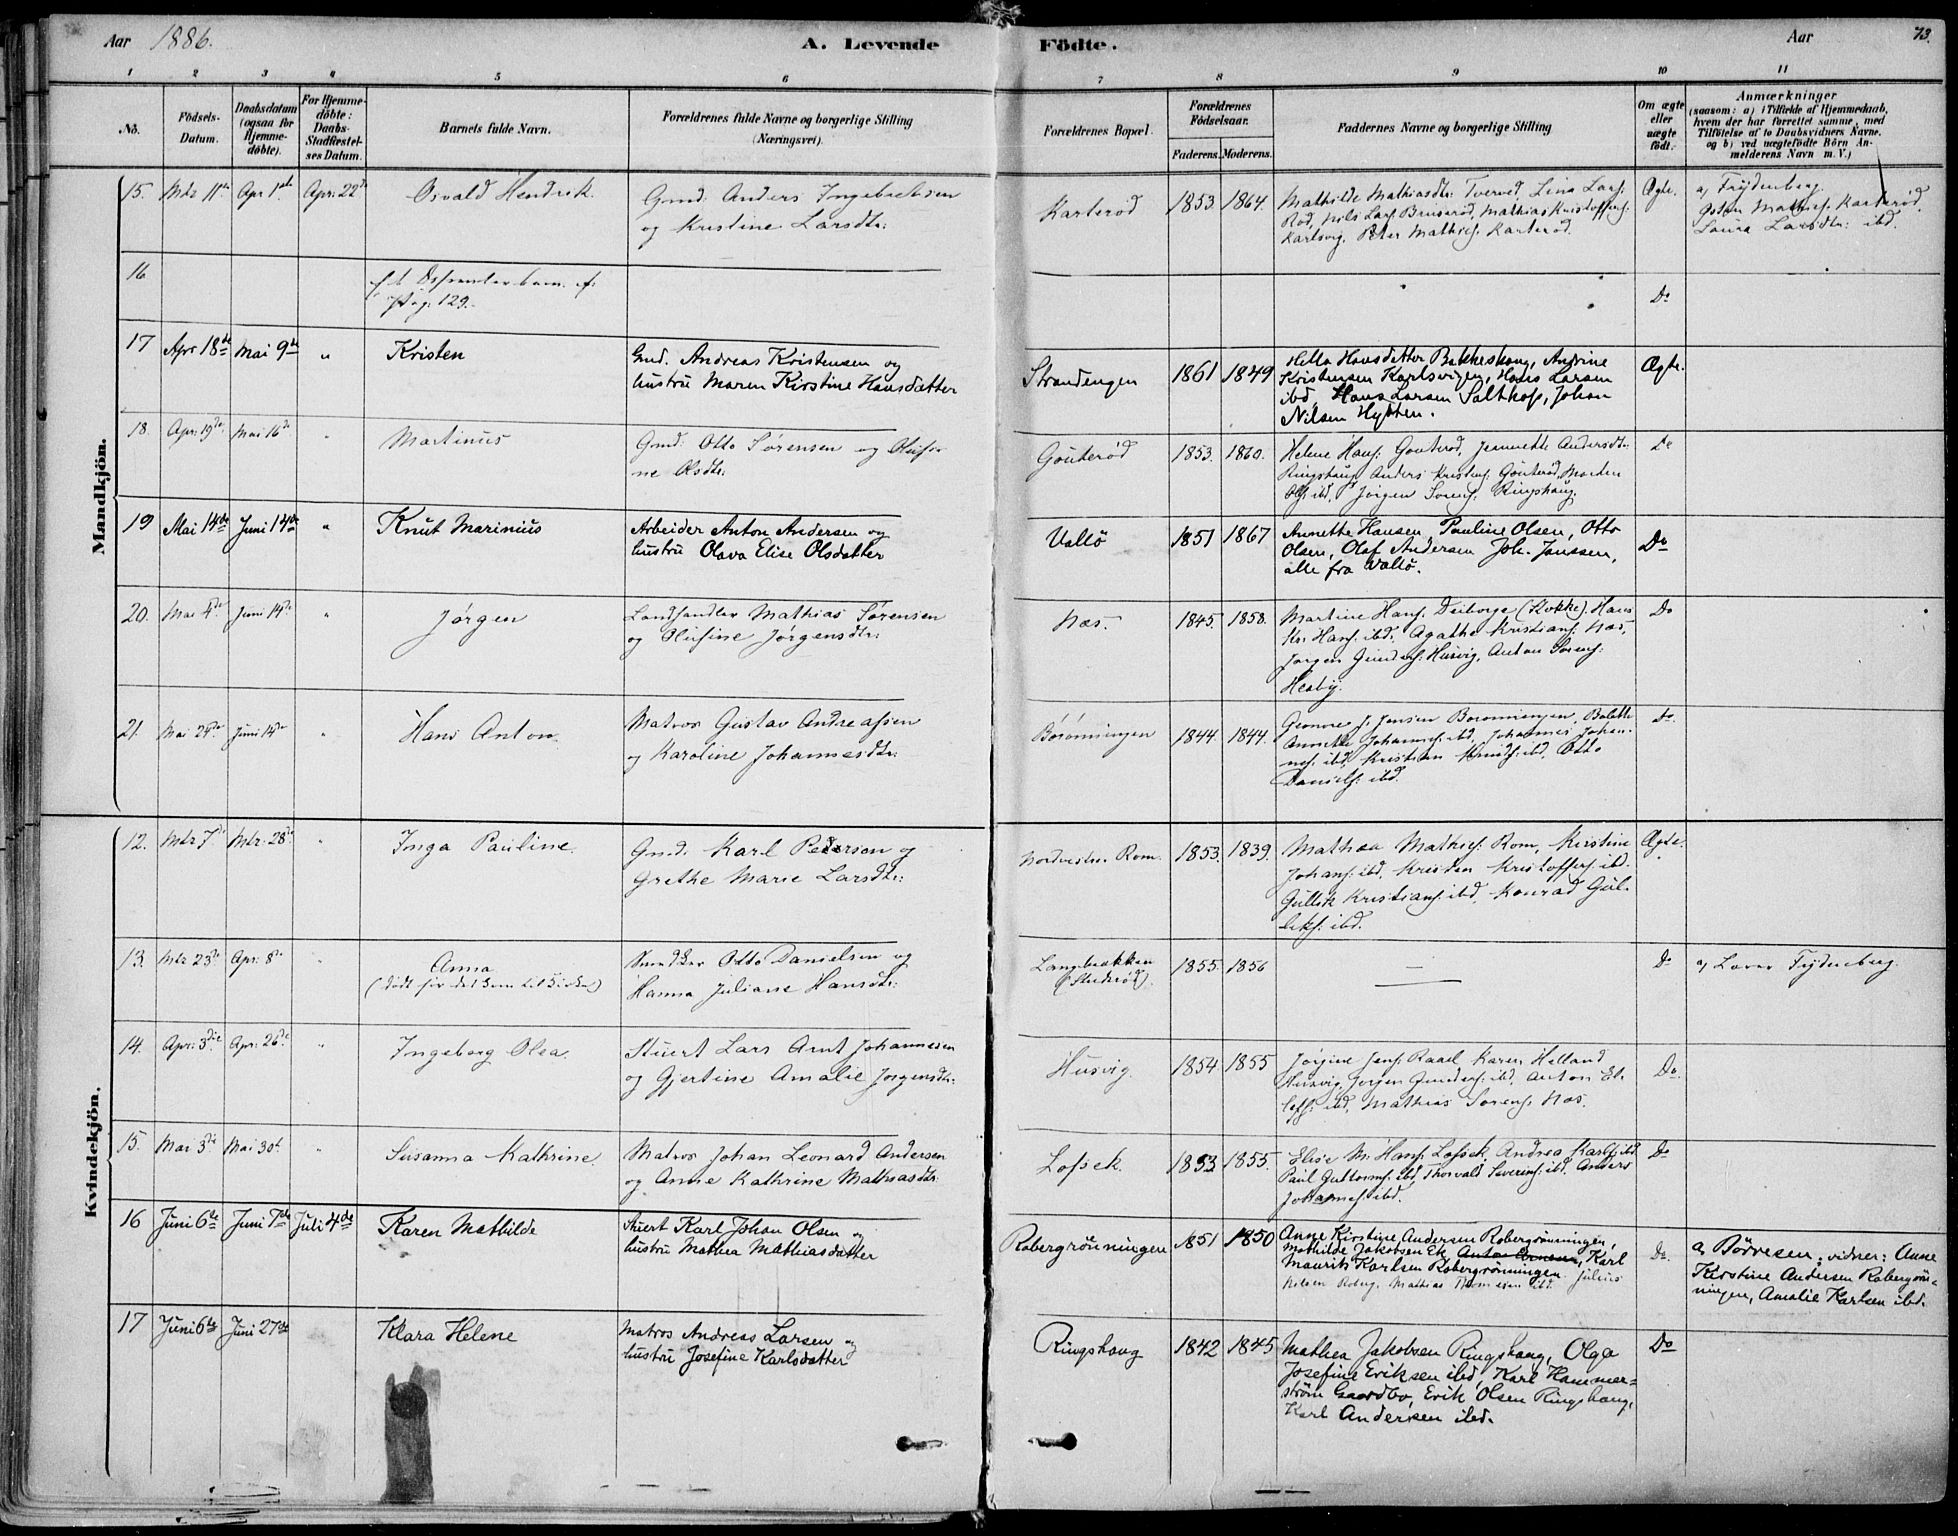 Aar 1886. A. Levende Födte. Aar 73.
1 2 3 4 5 6 7 8 9 10 11
No.
Födsels-
Datum.
Daabsdatum
(ogsaa for
Hjemme-
döbte).
For Hjemme-
döbte:
Daabs-
Stadfæstel-
ses Datum.
Barnets fulde Navn.
Forældrenes fulde Navne og borgerlige Stilling
(Næringsvei).
Forældrenes Bopæl.
Forældrenes
Födselsaar.
Faderens. Moderens.
Faddernes Navne og borgerlige Stilling
Om ægte
eller
uægte
födt.
Anmærkninger
(saasom: a) i Tilfælde af Hjemmedaab,
hvem der har forrettet samme, med
Tilföielse af to Daabsvidners Navne,
og b) ved uægtefödte Börn An-
melderens Navn m. V.)
Mandkjön.
15. Mts 11te Apr 1ste Apr: 22de Osvald Hendrik
Gmd: Anders Ingebretsen
og Kristine Larsdtr:
Karterød 1853. 1864.
Mathilde Mathiasdtr: Tverved, Lina Lars:
Rød, Nils Lars: Bruserød, Mathias Kristoffers:
Karlsvig, Peter Mathis: Karterød.
Ægte.
a, Frydenberg.
Mathis: Karterød.
Laura Larsdtr: ibd.
16
Pag. 129.
Do
17 Apr 18de Mai 9de " Kristen
Gmd. Andreas Kristensen og
hustru Maren Kirstine Hansdatter
Strandengen 1861 1849
Hella Hansdatter Bakkeskaug, Andrine
Kristensen Karlsvigen, Hans Larsen
ibd, Hans Larsen Saltkop, Johan
Nilsen Hytten.
Ægte.
18. Apr: 19de Mai 16de " Martinus
Gmd: Otto Sørensen og Olufi-
ne Olsdtr:
Gouterød 1853. 1860.
Helene Hans: Gouterød, Jeannette Andersdtr:
Ringshaug, Anders Kristens: Gouterød, Morten
Ols: ibd, Jørgen Sørens: Ringshaug.
Do
19 Mai 14de Juni 14de " Knut Marinius
Arbeider Anton Andersen og
hustru Olava Elise Olsdatter
Vallö 1851 1867
Annette Hansen, Pauline Olsen, Otto
Olsen, Olaf Andersen Joh. Janssen,
alle fra Vallö.
Do
20. Mai 4de Juni 14de " Jørgen
Landhandler Mathias Sørensen
og Olufine Jørgensdtr:
Næs. 1845. 1858.
Martine Hans: (Kokke), Hans
Kr: Hans: ibd, Agathe Kristians: Næs,
Jørgen Gunders: Husvig, Anton Sørens:
Heaby.
Do
21. Mai 24de Juni 14de " Hans Anton
Matros Gustav Andreassen
og Karoline Johannesdtr:
Börönningen 1844. 1844.
J. Jensen Börönningen, Bolette
Johannes: ibd, Johannes Johan-
nes: ibd, Kristian Knuds: ibd, Otto
Daniels: ibd.
Do.
Kvindekjön.
12. Mts 7de Mts: 28de " Inga Pauline.
Gmd: Karl Pedersen og
Grethe Marie Larsdtr:
Nordvestre Rom. 1853. 1839.
Mathea Mathis: Rom, Kristine
Johans: ibd, Kristen Kristoffers: ibd.
Gullik Kristians: ibd, Konrad Gul-
liks: ibd.
Ægte.
13. Mts 23de Apr: 8de " Anna
(Død før det kom til Kirken)
Smed Otto Danielsen og
Hanna Juliane Hansdtr:
Langebækken
1855. 1856
Do
a, Frydenberg.
14. Apr: 3die Apr: 26de " Ingeborg Olea.
Stuert Lars Arnt Johannesen
og Gjertine Amalie Jørgensdtr:
Husvig. 1854. 1855
Jørgine Jens: Raael, Karen Helland
Husvig, Jørgen Gunders: ibd, Anton El-
lefs: ibd, Mathias Sørens: Næs.
Do.
15. Mai 3die Mai 30te " Susanna Kathrine.
Matros Johan Leonard Andersen
og Anne Kathrine Mathiasdtr:
Lofsek. 1853 1855.
Elise M: Hans: Lofsek, Andrea Karls: ibd.
Paul Guttorms: ibd, Thorvald Severins: ibd, Anders
Johannes: ibd.
Do
16 Juni 6te Juni 7de Juli 4de Karen Mathilde
Stuert Karl Johan Olsen og
hustru Mathea Mathiasdatter
Robergrönningen 1851 1850
Anne Kirstine Andersen Robergrönningen,
Mathilde Jakobsen Ek, Karl
Maurits Karlsen Robergrönningen. Julius
Nilsen Roberg, Mathias Thomesen ibd.
Do.
a, Börresen, vidner: Anne
Kirstine Andersen Robergrön-
ningen, Amalie Karlsen ibd.
17 Juni 6te Juni 27de Klara Helene
Matros Andreas Larsen og
hustru Josefine Karlsdatter
Ringshaug 1842 1845
Mathea Jakobsen Ringshaug, Olga
Josefine Eriksen ibd, Karl Hammer-
ström Gaardbo, Erik Olsen Ringshaug,
Karl Andersen ibd.
Do